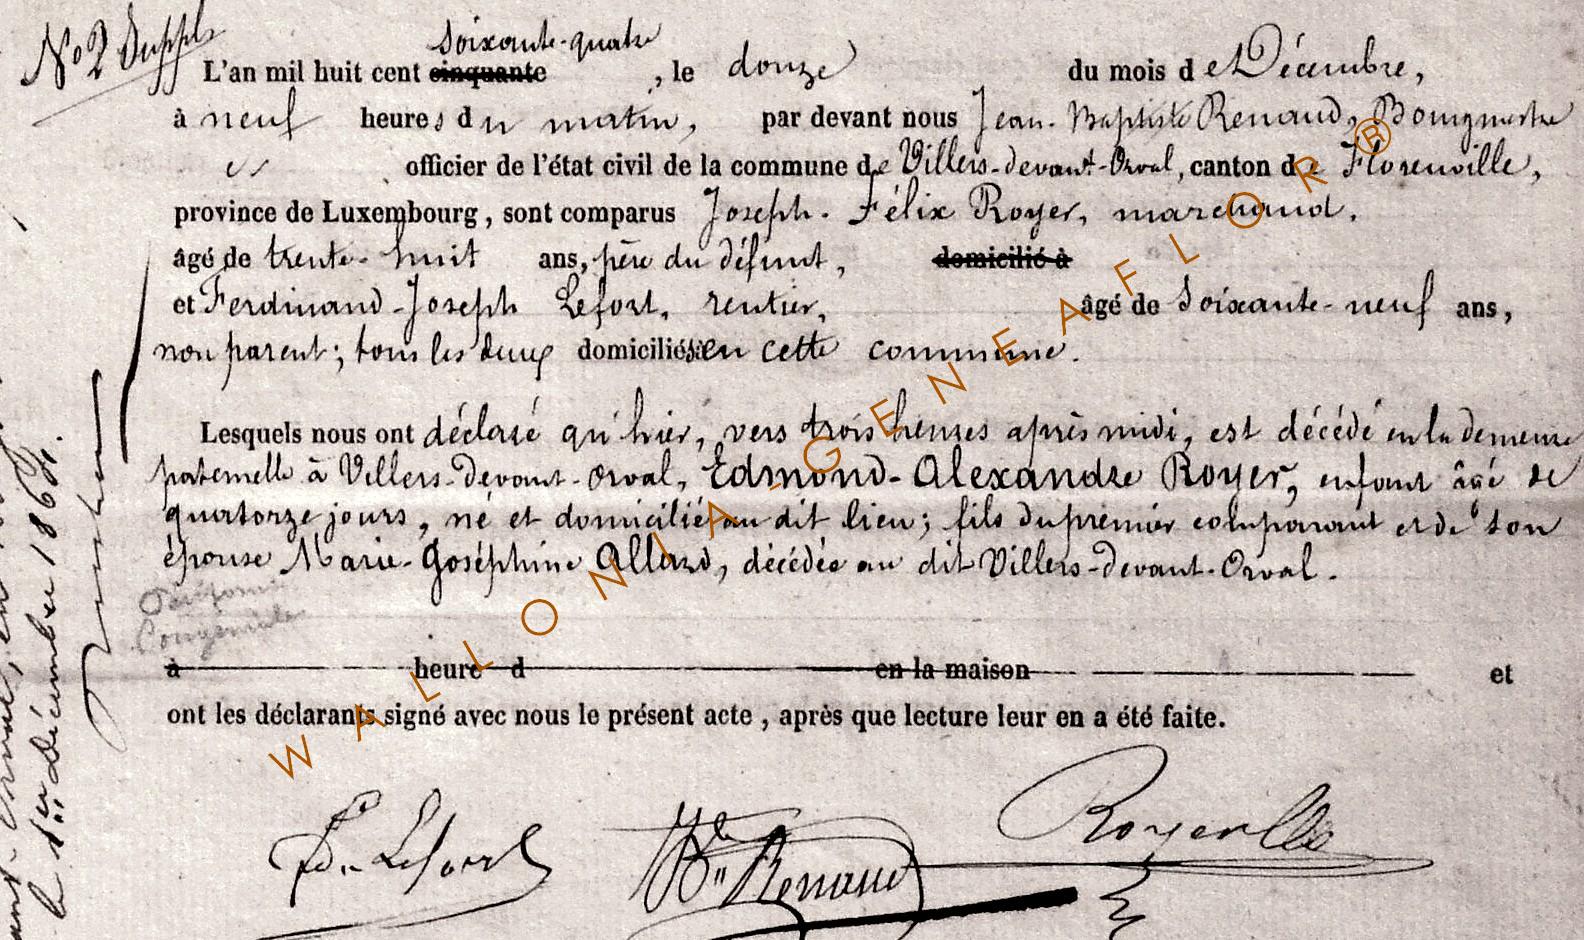 No 2 Suppl
soixante-quatre
L'an mil huit cent cinquante, le douze du mois de Décembre,
à neuf heures du matin, par devant nous Jean-Baptiste Renaud, Bourgmestre
officier de l'état civil de la commune de Villers-devant-Orval, canton de Florenville,
province de Luxembourg, sont comparus Joseph-Félix Royer, marchand,
âgé de trente-huit ans, père du défunt, domicilié à
et Ferdinand-Joseph Lefort, rentier, âgé de soixante-neuf ans,
non parent; tous les deux domiciliés en cette commune.
Lesquels nous ont déclaré qu'hier, vers trois heures après midi, est décédé en la demeure
paternelle à Villers-devant-Orval, Edmond-Alexandre Royer, enfant âgé de
quatorze jours, né et domicilié au dit lieu; fils du premier comparant et de son
épouse Marie-Joséphine Allard, décédée au dit Villers-devant-Orval.
à heure d en la maison et
ont les déclarants signé avec nous le présent acte, après que lecture leur en a été faite.
Lefort Renaud Royer
le décembre
WALLONIA-GENEAFLOR®